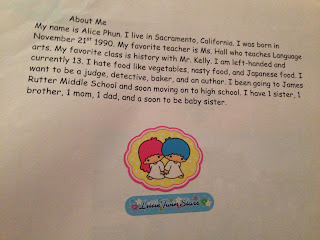 About Me
My name is Alice Phun. I live in Sacramento, California. I was born in
November 21st 1990. My favorite teacher is Ms. Hall who teaches Language
arts. My favorite class is history with Mr. Kelly. I am left-handed and
currently 13. I hate food like vegetables, nasty food, and Japanese food. I
want to be a judge, detective, baker, and an author. I been going to James
Rutter Middle School and soon moving on to high school. I have 1 sister, 1
brother, 1 mom, 1 dad, and a soon to be baby sister.
Little Twin Stars